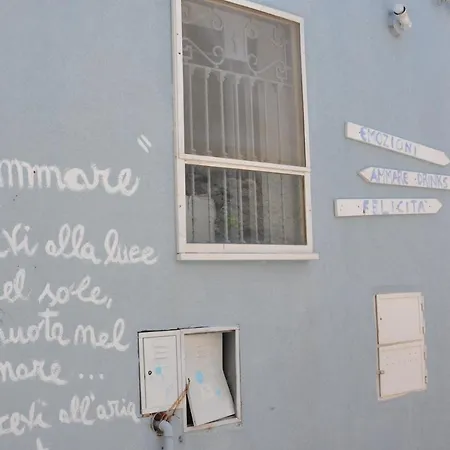 mmare"
vi alla luce
el sole,
uota nel
mare ...
cevi all'aria
EMOZIONI
AMMARE - DRINKS
FELICITA'